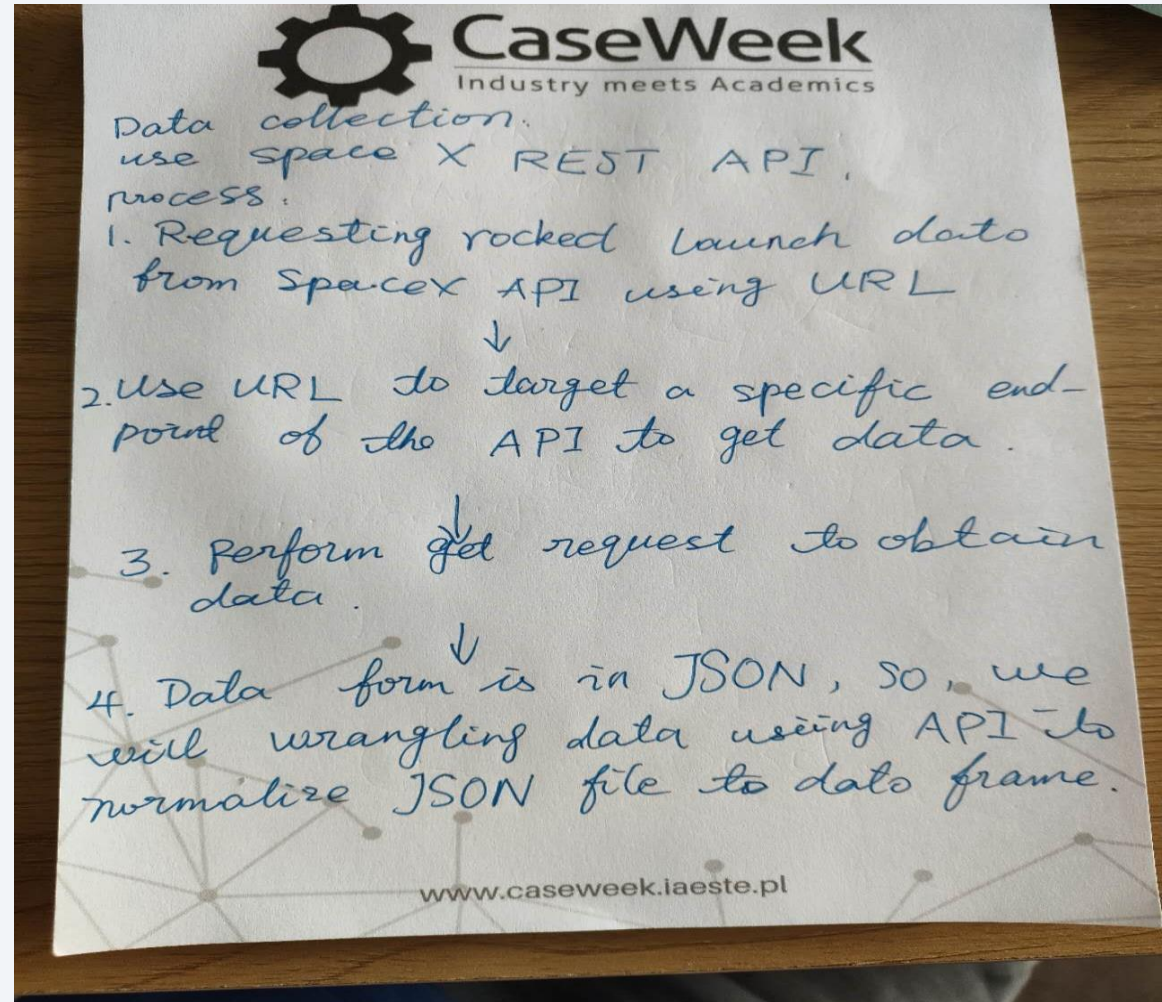 CaseWeek
Industry meets Academics
Data collection.
use space X REST API.
process:
1. Requesting rocked launch data
from SpaceX API using URL
↓
2. Use URL to target a specific end-
point of the API to get data.
↓
3. Perform get request to obtain
data.
↓
4. Data form is in JSON, so, we
will wrangling data useing API to
normalize JSON file to data frame.
www.caseweek.iaeste.pl